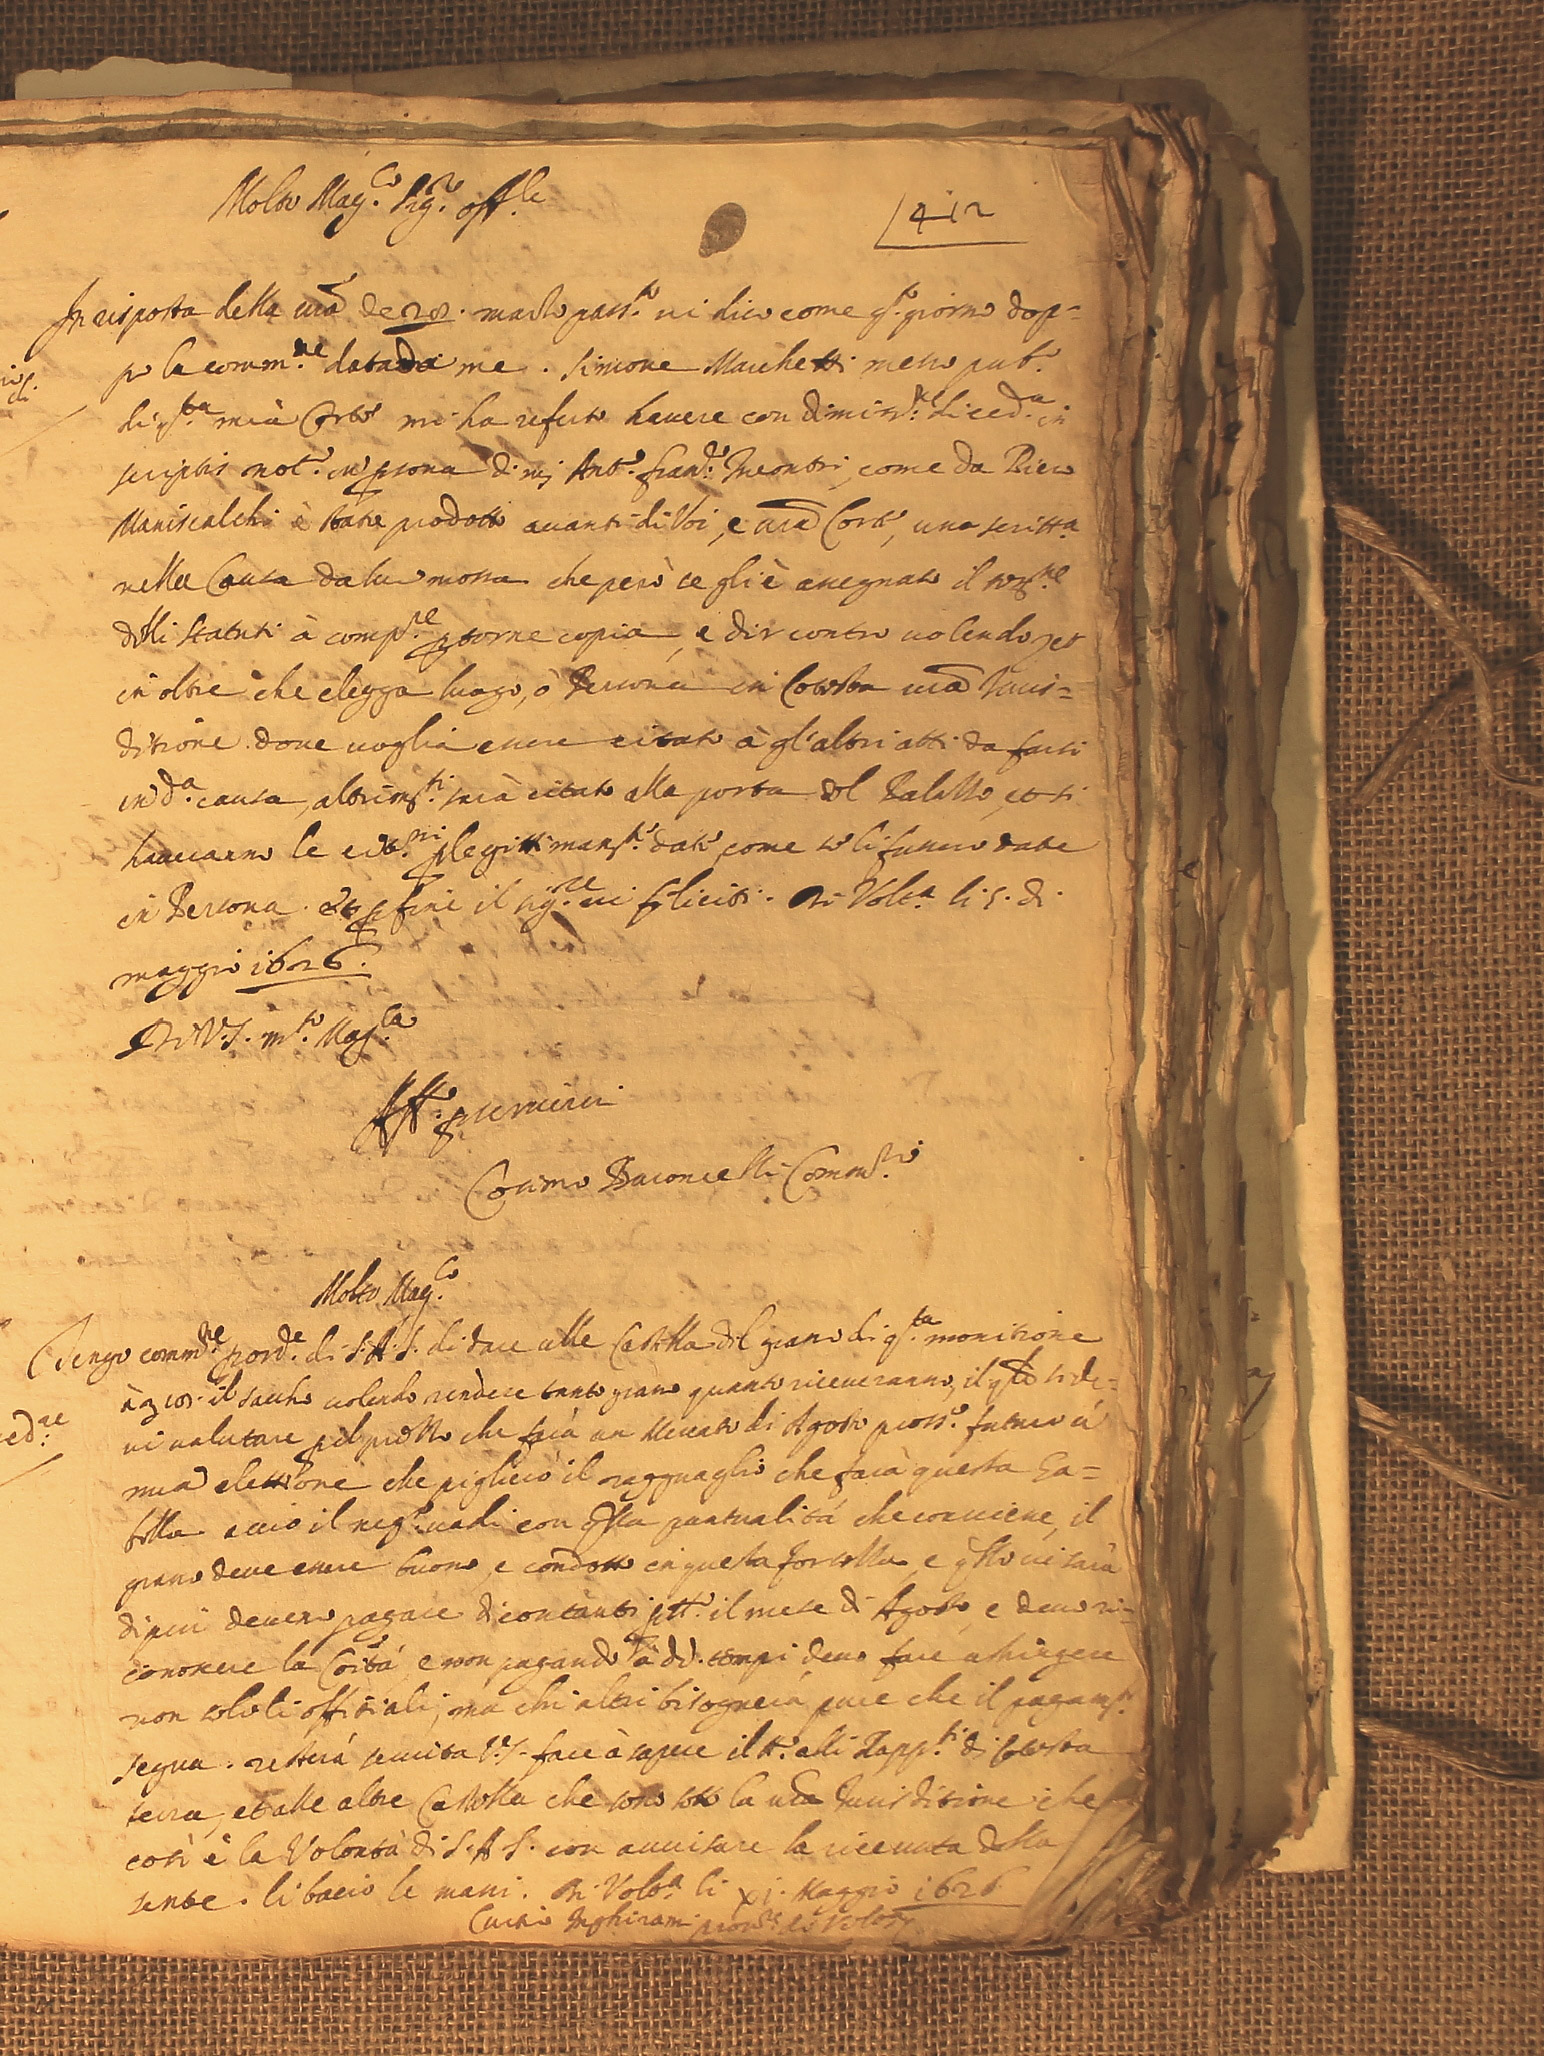 Molto Mag.co Sig.r off.le
412
In risposta della vra de 28. marzo pass.to vi dico come q.to giorno dop=
po la comm.ne data da me. Simone Marchetti messo pub.o
di q.ta mia Corte mi ha referto havere con dimiss.ne di ced.a in
scriptis not.o in psona di mj Ant.o Fran.co Incontri, come da Piero
Maniscalchi è stata prodotta avanti di Voi, e vra Corte, una scritt.a
nella Causa da lui mossa che però se gli è assegnato il term.ne
delli statuti à comp.re p torne copia, e dir contro volendo, et
in oltre che elegga luogo, ò Persona in Cotesta vra Iuris=
ditione dove voglia essere citato à gl'altri atti da farsi
in d.a causa, altrim.ti sarà citato alla porta del Palazzo, et si
haveranno le cit.ni p legittimam.te date come se li fussero date
in Persona. et p fine il sig.re vi feliciti. Di Volt.a li 5. di
maggio 1626.
Di V.S. m.to Mag.ca
Aff. p servirvi
Cosimo Baroncelli Comm.rio
Molto Mag.co
Tengo comm.ne p ord.e di S.A.S. di dare alle Castella del grano di q.ta monitione
il sacho volendo rendere tanto grano quanto riceveranno, il q.le si de=
vi valutare pel prezzo che farà un Mercato di Agosto pross.o futuro à
mia elettione che piglierò il ragguaglio che farà questa Ga=
bella acciò il neg.o vadi con q.lla puntualità che conviene, il
grano deve essere buono, e condotto in questa fortezza, e q.llo vi sarà
di più devere pagare di contanti p tt.o il mese di Agosto, e deve ri=
conoscere la Coità, e non pagando à dd. tempi devo fare astringere
non solo li offitiali, ma chi altri bisognerà pure che il pagam.to
segua. resterà servita V.S. fare à sapere il tt.o alli Rapp.ti di Cotesta
terra, et alle altre Castella che sono sotto la vra Iurisditione che
così è la Volontà di S.A.S. con avvisare la ricevuta della
sente. li bacio le mani. Di Volt.a li xi. Maggio 1626
Curtio Inghirami prov.re di Volt.a